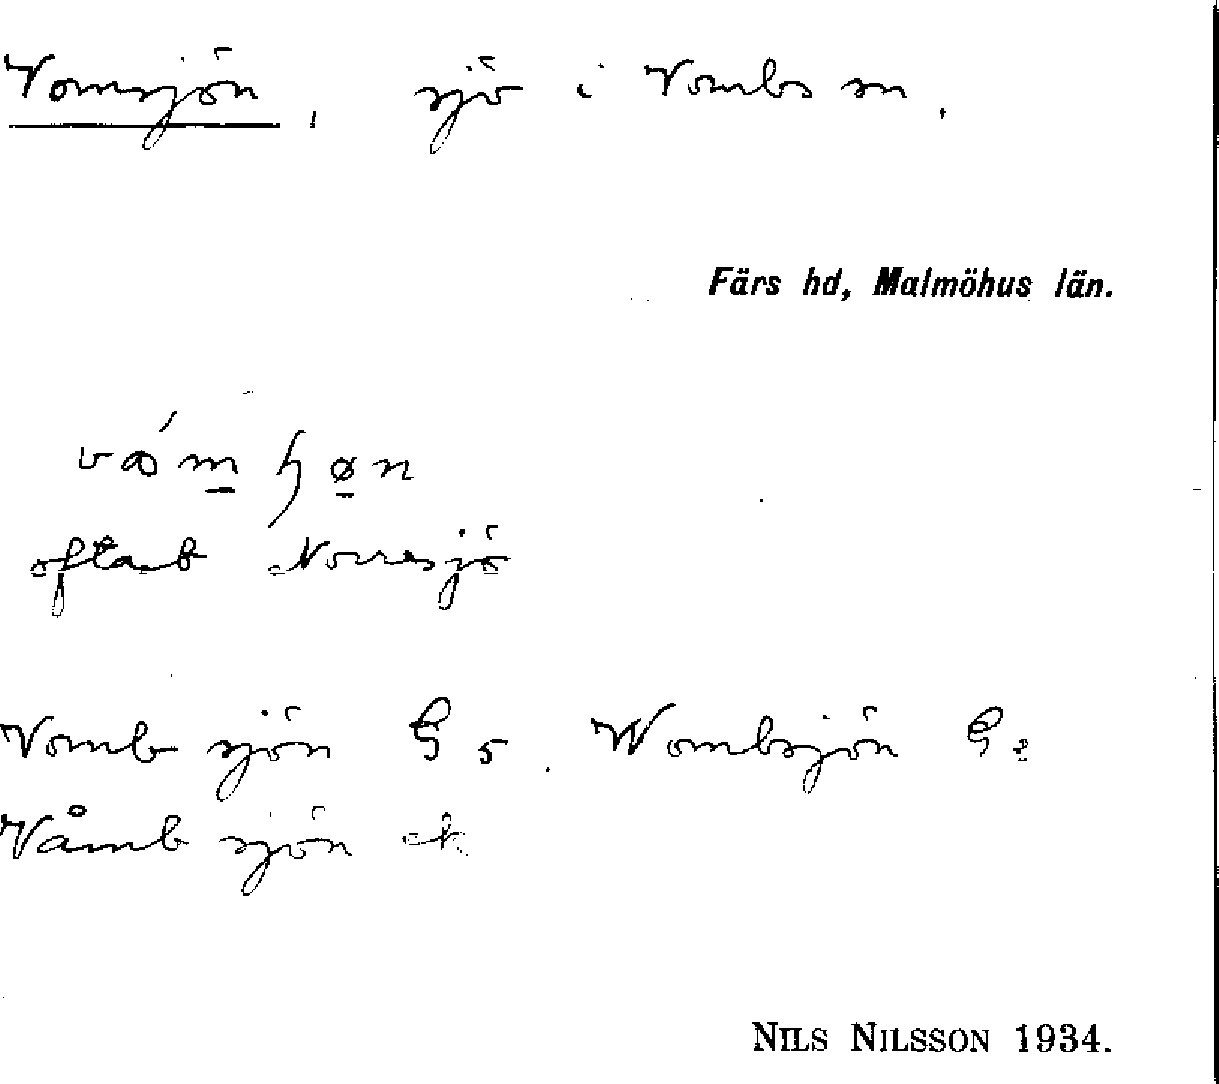 Vomsjön, sjö i Vombs sn.
Färs hd, Malmöhus län.
oftast Norresjö
Vomb sjön G 5. Wombsjön G 2
Våmb sjön ek
NILS NILSSON 1934.